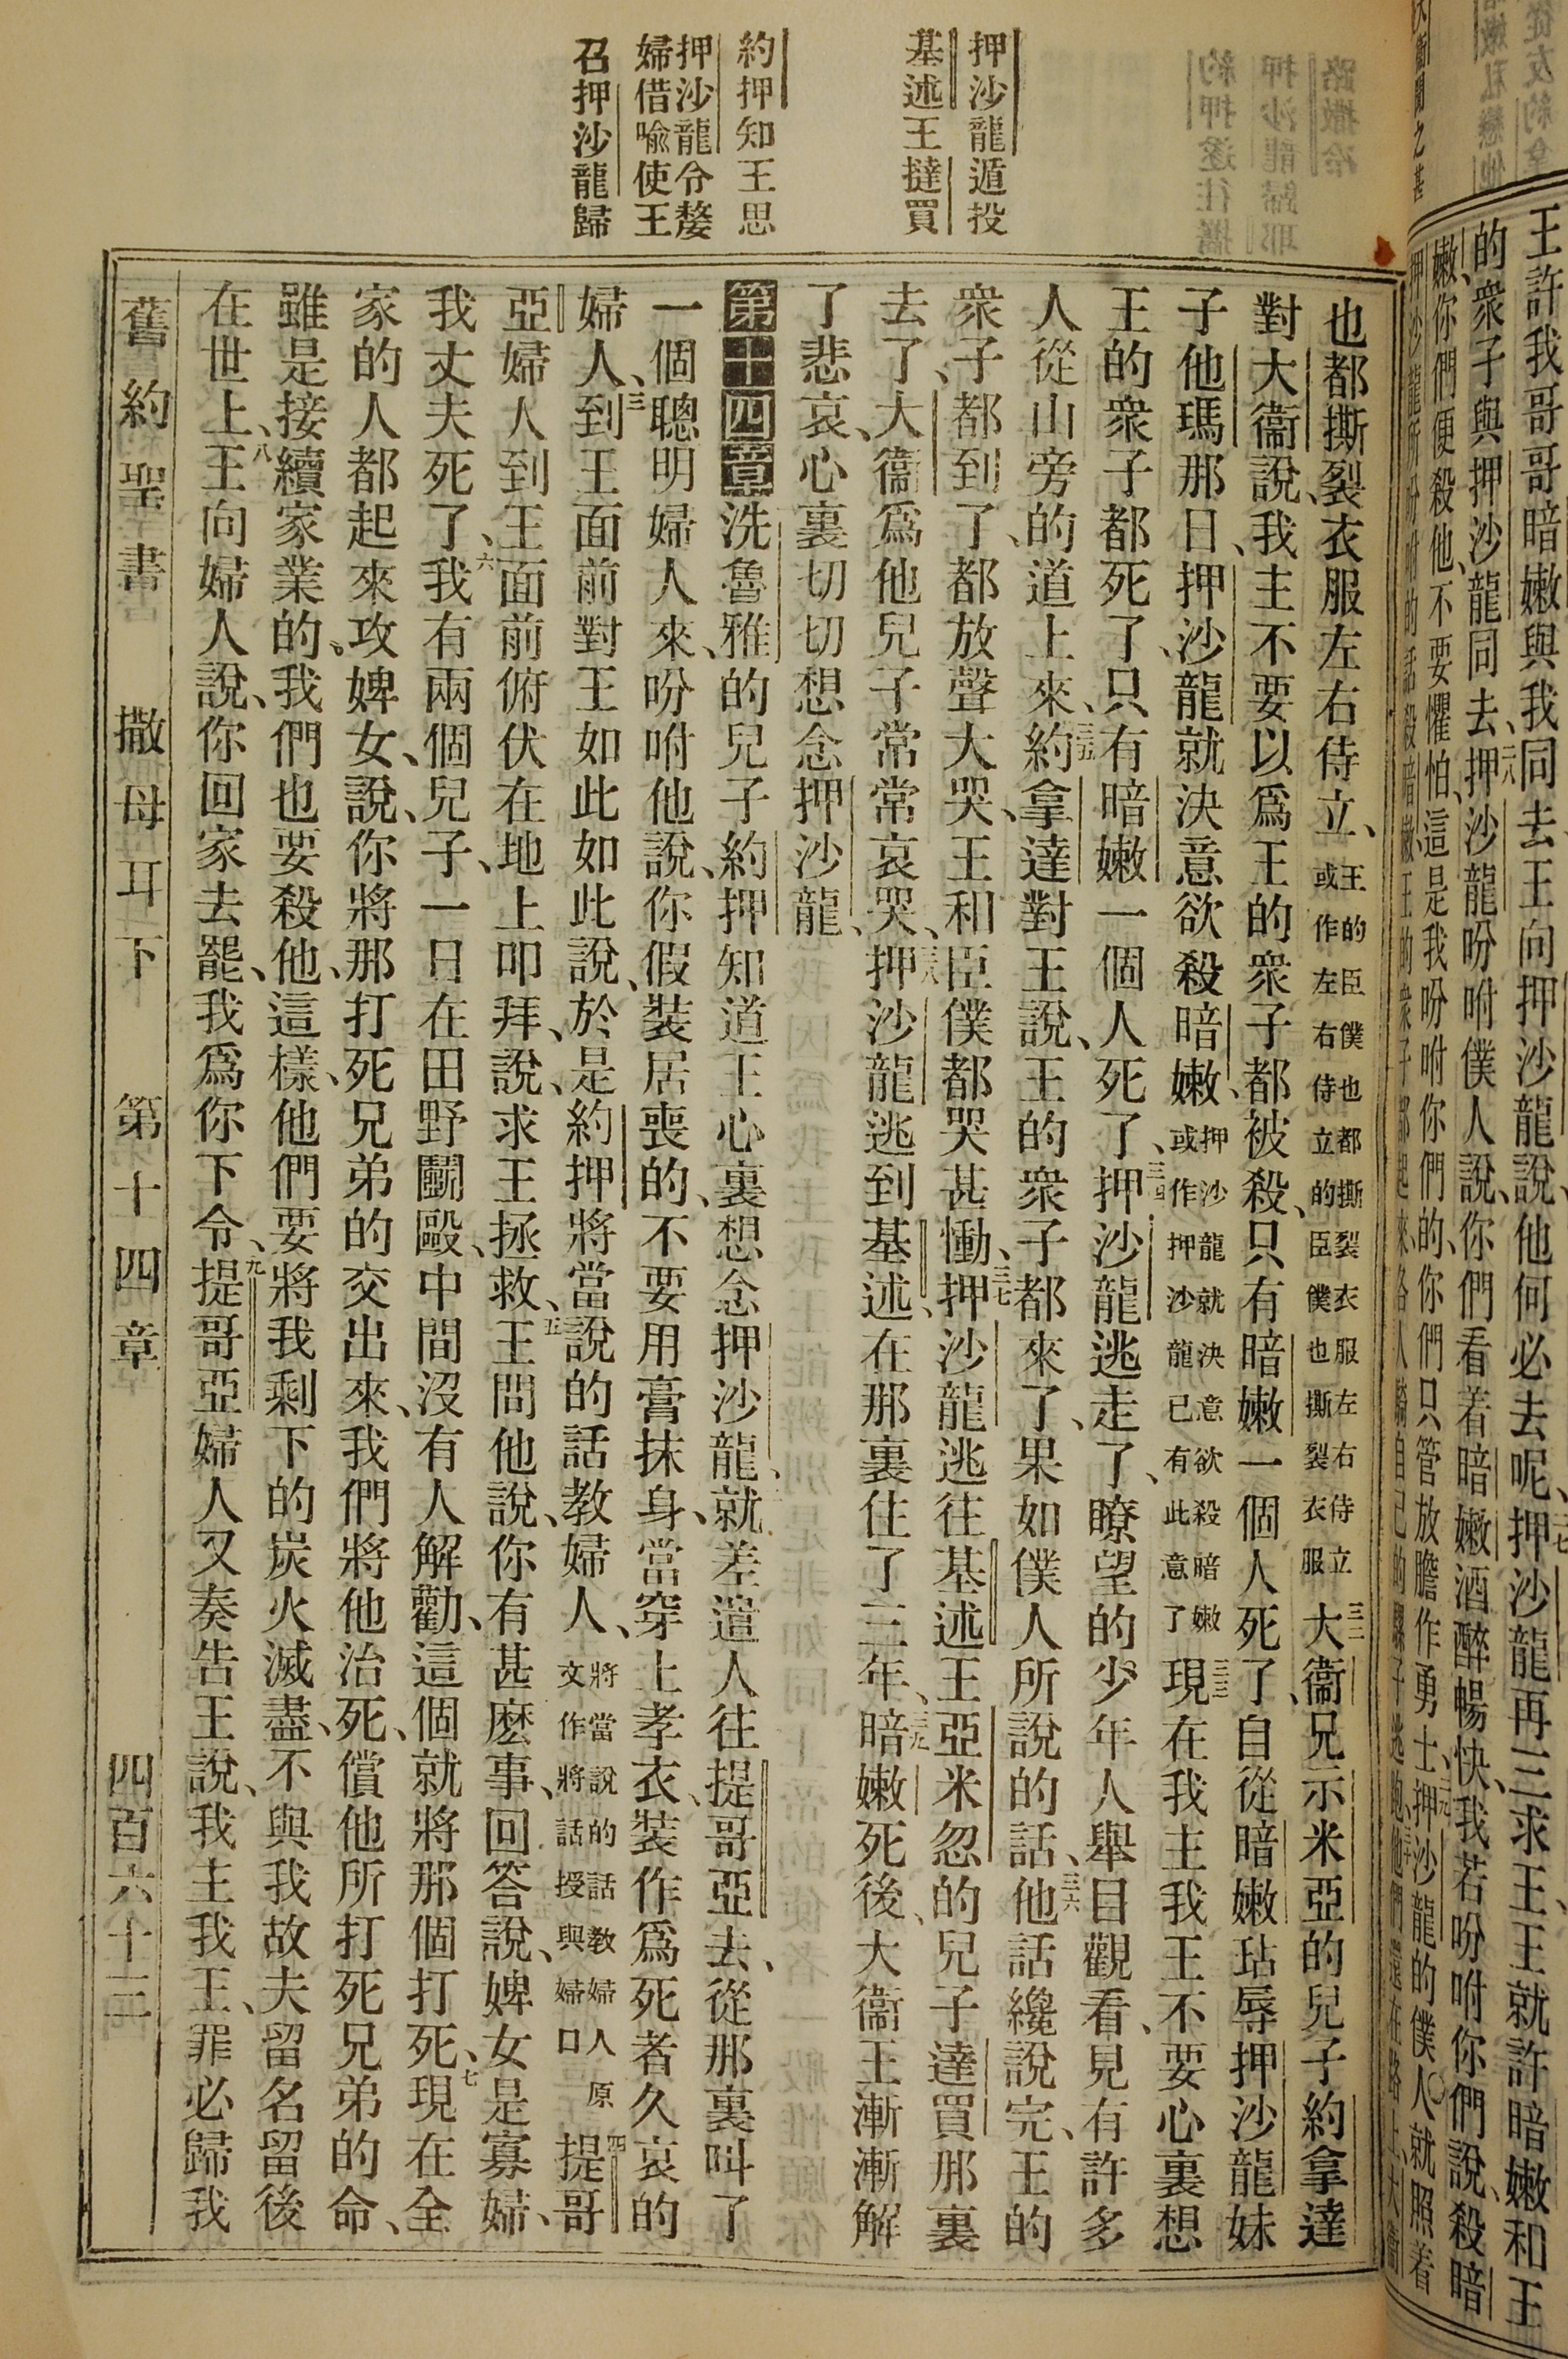 王許我哥哥暗嫩與我同去、王向押沙龍說、他何必去呢、二七押沙龍再三求王、王就許暗嫩和王
的衆子與押沙龍同去、二八押沙龍吩咐僕人說、你們看着暗嫩酒醉暢快、我若吩咐你們說、殺暗
嫩、你們便殺他、不要懼怕、這是我吩咐你們的、你們只管放膽作勇士、二九押沙龍的僕人就照着
押沙龍所吩咐的話殺暗嫩、王的衆子都起來、各人騎自己的騾子逃跑、三十他們還在路上、大衛
押沙龍遁投
基述王撻買
約押知王思
押沙龍令嫠
婦借喻使王
召押沙龍歸
也都撕裂衣服左右侍立、王的臣僕也都撕裂衣服左右侍立或作左右侍立的臣僕也撕裂衣服三二大衞兄示米亞的兒子約拿達
對大衞說、我主不要以爲王的衆子都被殺、只有暗嫩一個人死了、自從暗嫩玷辱押沙龍妹
子他瑪那日、押沙龍就決意欲殺暗嫩、押沙龍就決意欲殺暗嫩或作押沙龍已有此意了三三現在我主我王不要心裏想
王的衆子都死了、只有暗嫩一個人死了、三四押沙龍逃走了、瞭望的少年人舉目觀看、見有許多
人從山旁的道上來、三五約拿達對王說、王的衆子都來了、果如僕人所說的話、三六他話纔說完、王的
衆子都到了、都放聲大哭、王和臣僕都哭甚慟、三七押沙龍逃往基述王亞米忽的兒子達買那裏
去了、大衞爲他兒子常常哀哭、三八押沙龍逃到基述、在那裏住了三年、三九暗嫩死後、大衞王漸漸解
了悲哀、心裏切切想念押沙龍、
第十四章洗魯雅的兒子約押知道王心裏想念押沙龍、二就差遣人往提哥亞去、從那裏叫了
一個聰明婦人來、吩咐他說、你假裝居喪的、不要用膏抹身、當穿上孝衣、裝作爲死者久哀的
婦人、三到王面前對王如此如此說、於是約押將當說的話教婦人、將當說的話教婦人原文作將話授與婦口四提哥
亞婦人到王面前俯伏在地上叩拜、說、求王拯救、五王問他說、你有甚麼事、回答說、婢女是寡婦、
我丈夫死了、六我有兩個兒子、一日在田野鬭毆、中間沒有人解勸、這個就將那個打死、七現在全
家的人都起來攻婢女、說、你將那打死兄弟的交出來、我們將他治死、償他所打死兄弟的命、
雖是接續家業的、我們也要殺他、這樣、他們要將我剩下的炭火滅盡、不與我故夫留名留後
在世上、八王向婦人說、你回家去罷、我爲你下令、九提哥亞婦人又奏告王說、我主我王、罪必歸我
舊約聖書 撒母耳下 第十四章 四百六十二